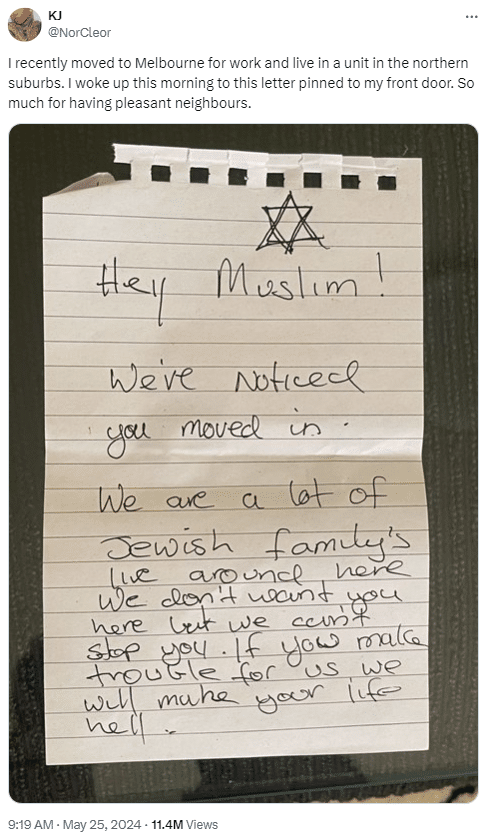 KJ
@NorCleor
I recently moved to Melbourne for work and live in a unit in the northern
suburbs. I woke up this morning to this letter pinned to my front door. So
much for having pleasant neighbours.
Hey Muslim!
We've Noticed
you moved in.
We are a lot of
Jewish family's
live around here
We don't want you
here but we can't
stop you. If you make
trouble for us we
will make your life
hell.
9:19 AM · May 25, 2024 · 11.4M Views